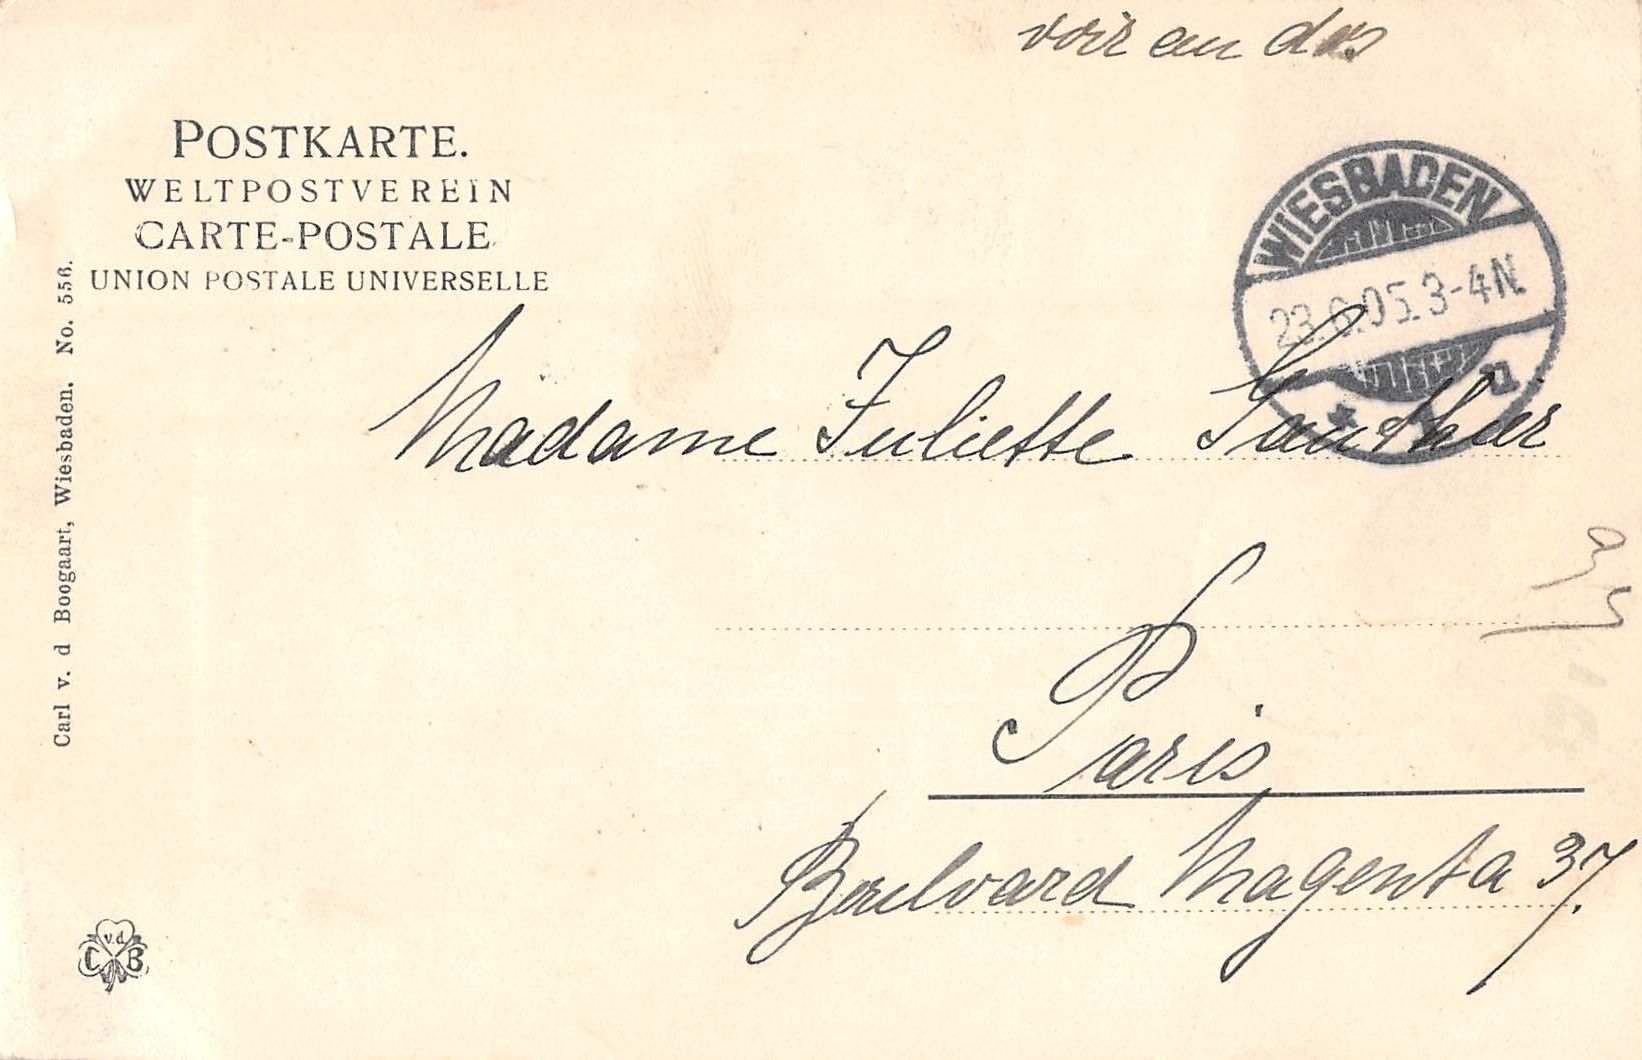 voir au dos
POSTKARTE.
WELTPOSTVEREIN
CARTE-POSTALE
UNION POSTALE UNIVERSELLE
WIESBADEN
23.6.05. 3-4N.
* 1 a
Madame Juliette Gauthier
Paris
Boulvard Magenta 37.
Carl v. d Boogaart, Wiesbaden. No. 556.
v.d.
C B